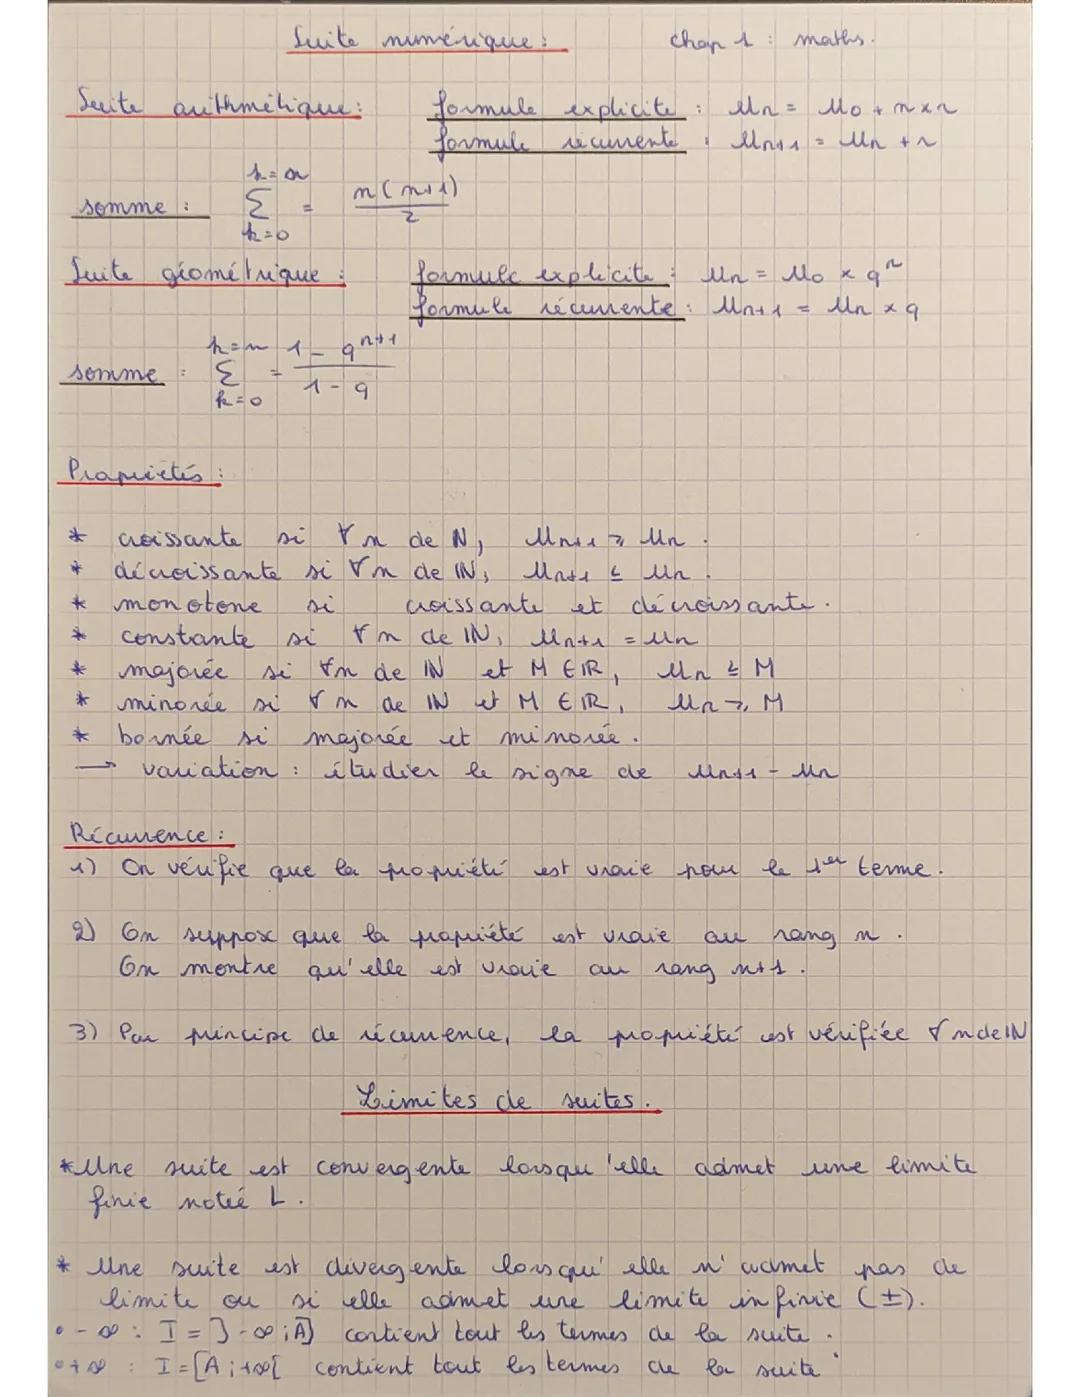 Suite numérique : chap 1 : maths.
Suite arithmétique : formule explicite : Un = U0 + n x r
formule récurrente : Un+1 = Un + r
k=n
somme : Σ = n(n+1)/2
k=0
Suite géométrique : formule explicite : Un = U0 x q^n
formule récurrente : Un+1 = Un x q
k=n
somme : Σ = (1 - q^n+1)/(1 - q)
k=0
Propriétés :
* croissante si ∀n de N, Un+1 ⩾ Un.
* décroissante si ∀n de IN, Un+1 ⩽ Un.
* monotone si croissante et décroissante.
* constante si ∀n de IN, Un+1 = Un
* majorée si ∀n de IN et M ∈ IR, Un ⩽ M
* minorée si ∀n de IN et M ∈ IR, Un ⩾ M
* bornée si majorée et minorée.
→ variation : étudier le signe de Un+1 - Un
Récurrence :
1) On vérifie que la propriété est vraie pour le 1er terme.
2) On suppose que la propriété est vraie au rang n.
On montre qu'elle est vraie au rang n+1.
3) Par principe de récurrence, la propriété est vérifiée ∀n de IN
Limites de suites.
* Une suite est convergente lorsqu'elle admet une limite
finie notée L.
* Une suite est divergente lorsqu'elle n'admet pas de
limite ou si elle admet une limite infinie (±).
• -∞ : I = ]-∞;A] contient tout les termes de la suite.
• +∞ : I = [A;+∞[ contient tout les termes de la suite.